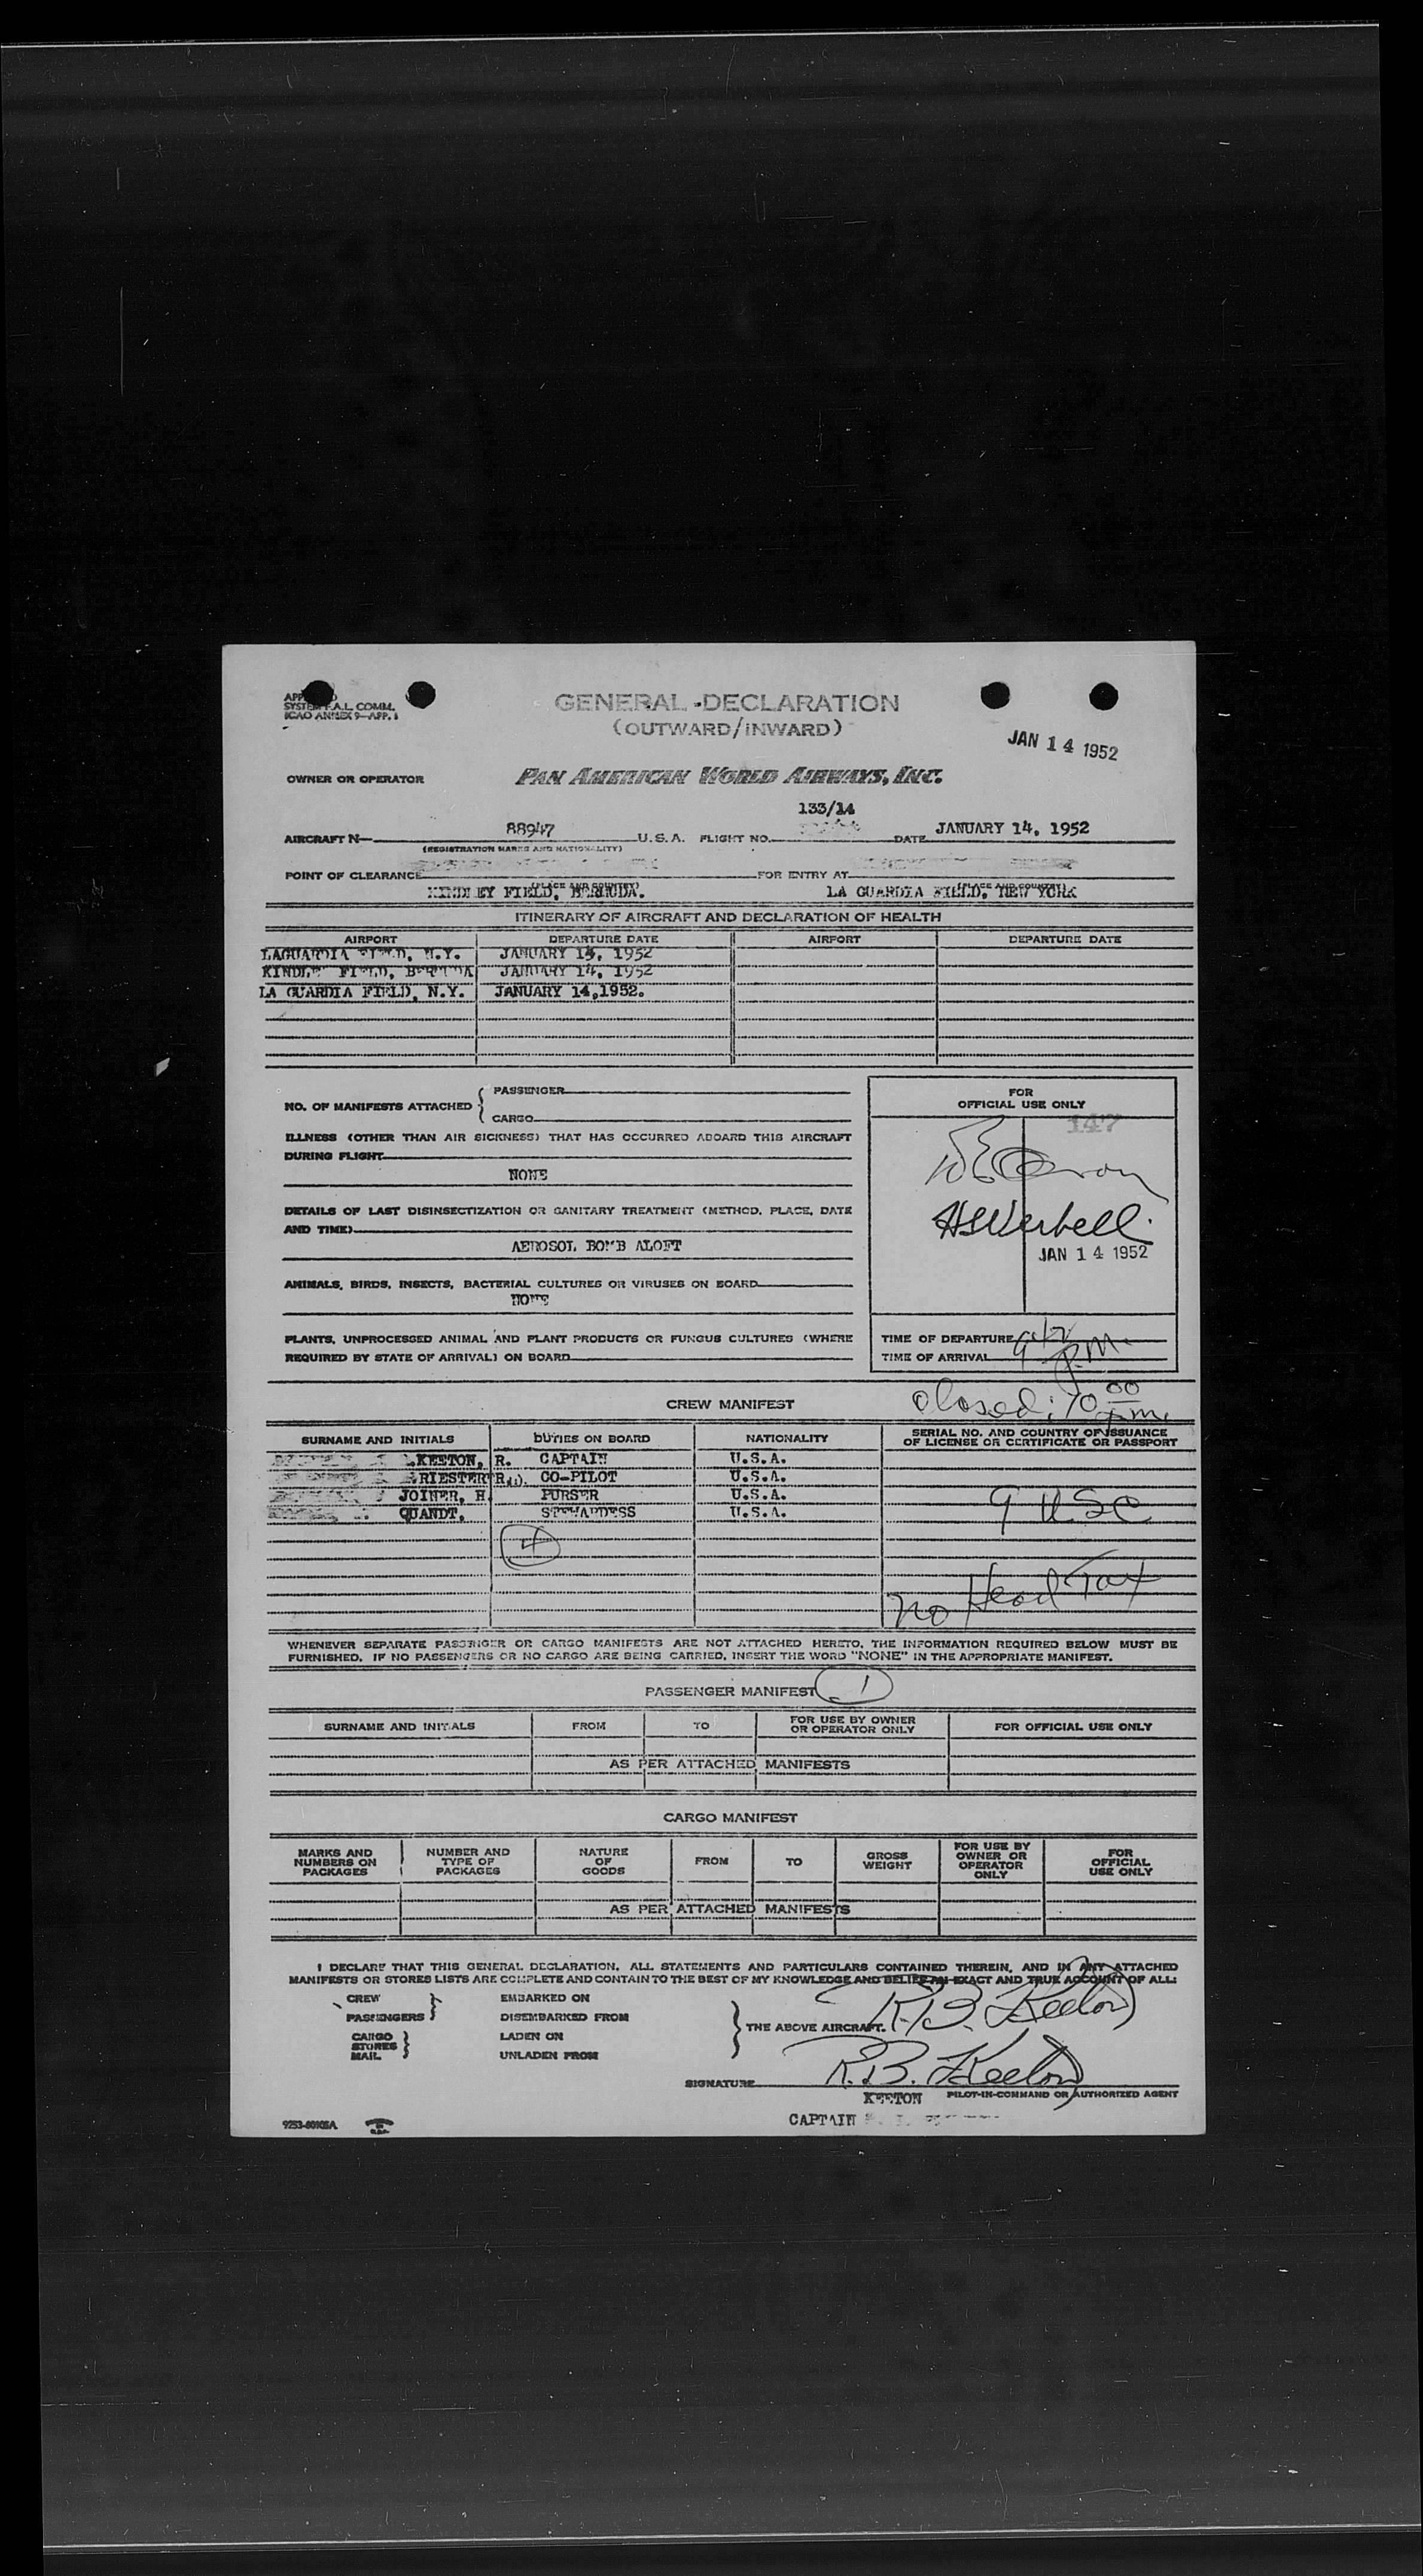 SYSTEM F.A.L. COMM.
ICAO ANNEX 9—APP. 1
GENERAL DECLARATION
(OUTWARD/INWARD)
JAN 14 1952
OWNER OR OPERATOR PAN AMERICAN WORLD AIRWAYS, INC.
133/14
AIRCRAFT N— 88947 U.S.A. FLIGHT NO. DATE JANUARY 14, 1952
(REGISTRATION MARKS AND NATIONALITY)
POINT OF CLEARANCE FOR ENTRY AT
(PLACE AND COUNTRY) (PLACE AND COUNTRY)
KINDLEY FIELD, BERMUDA. LA GUARDIA FIELD, NEW YORK
ITINERARY OF AIRCRAFT AND DECLARATION OF HEALTH
AIRPORT DEPARTURE DATE AIRPORT DEPARTURE DATE
LAGUARDIA FIELD, N.Y. JANUARY 14, 1952
KINDLEY FIELD, BERMUDA JANUARY 14, 1952
LA GUARDIA FIELD, N.Y. JANUARY 14,1952.
NO. OF MANIFESTS ATTACHED { PASSENGER
CARGO
ILLNESS (OTHER THAN AIR SICKNESS) THAT HAS OCCURRED ABOARD THIS AIRCRAFT
DURING FLIGHT
NONE
DETAILS OF LAST DISINSECTIZATION OR SANITARY TREATMENT (METHOD, PLACE, DATE
AND TIME)
AEROSOL BOMB ALOFT
ANIMALS, BIRDS, INSECTS, BACTERIAL CULTURES OR VIRUSES ON BOARD
NONE
PLANTS, UNPROCESSED ANIMAL AND PLANT PRODUCTS OR FUNGUS CULTURES (WHERE
REQUIRED BY STATE OF ARRIVAL) ON BOARD
FOR
OFFICIAL USE ONLY
147
HSWerbell.
JAN 14 1952
TIME OF DEPARTURE
TIME OF ARRIVAL P.M.
Closed: 10 00 p.m.
CREW MANIFEST
SURNAME AND INITIALS DUTIES ON BOARD NATIONALITY SERIAL NO. AND COUNTRY OF ISSUANCE
OF LICENSE OR CERTIFICATE OR PASSPORT
KEETON, R. CAPTAIN U.S.A.
RIESTER R. CO-PILOT U.S.A.
JOINER, H. PURSER U.S.A.
QUANDT, STEWARDESS U.S.A.
9 USC
4
no Head Tax
WHENEVER SEPARATE PASSENGER OR CARGO MANIFESTS ARE NOT ATTACHED HERETO, THE INFORMATION REQUIRED BELOW MUST BE
FURNISHED. IF NO PASSENGERS OR NO CARGO ARE BEING CARRIED, INSERT THE WORD "NONE" IN THE APPROPRIATE MANIFEST.
PASSENGER MANIFEST 1
SURNAME AND INITIALS FROM TO FOR USE BY OWNER
OR OPERATOR ONLY FOR OFFICIAL USE ONLY
AS PER ATTACHED MANIFESTS
CARGO MANIFEST
MARKS AND
NUMBERS ON
PACKAGES NUMBER AND
TYPE OF
PACKAGES NATURE
OF
GOODS FROM TO GROSS
WEIGHT FOR USE BY
OWNER OR
OPERATOR
ONLY FOR
OFFICIAL
USE ONLY
AS PER ATTACHED MANIFESTS
I DECLARE THAT THIS GENERAL DECLARATION, ALL STATEMENTS AND PARTICULARS CONTAINED THEREIN, AND IN ANY ATTACHED
MANIFESTS OR STORES LISTS ARE COMPLETE AND CONTAIN TO THE BEST OF MY KNOWLEDGE AND BELIEF AN EXACT AND TRUE ACCOUNT OF ALL:
CREW EMBARKED ON
PASSENGERS DISEMBARKED FROM
CARGO LADEN ON
STORES
MAIL UNLADEN FROM
THE ABOVE AIRCRAFT.
R.B. Keeton
R.B. Keeton
SIGNATURE
KEETON PILOT-IN-COMMAND OR AUTHORIZED AGENT
CAPTAIN